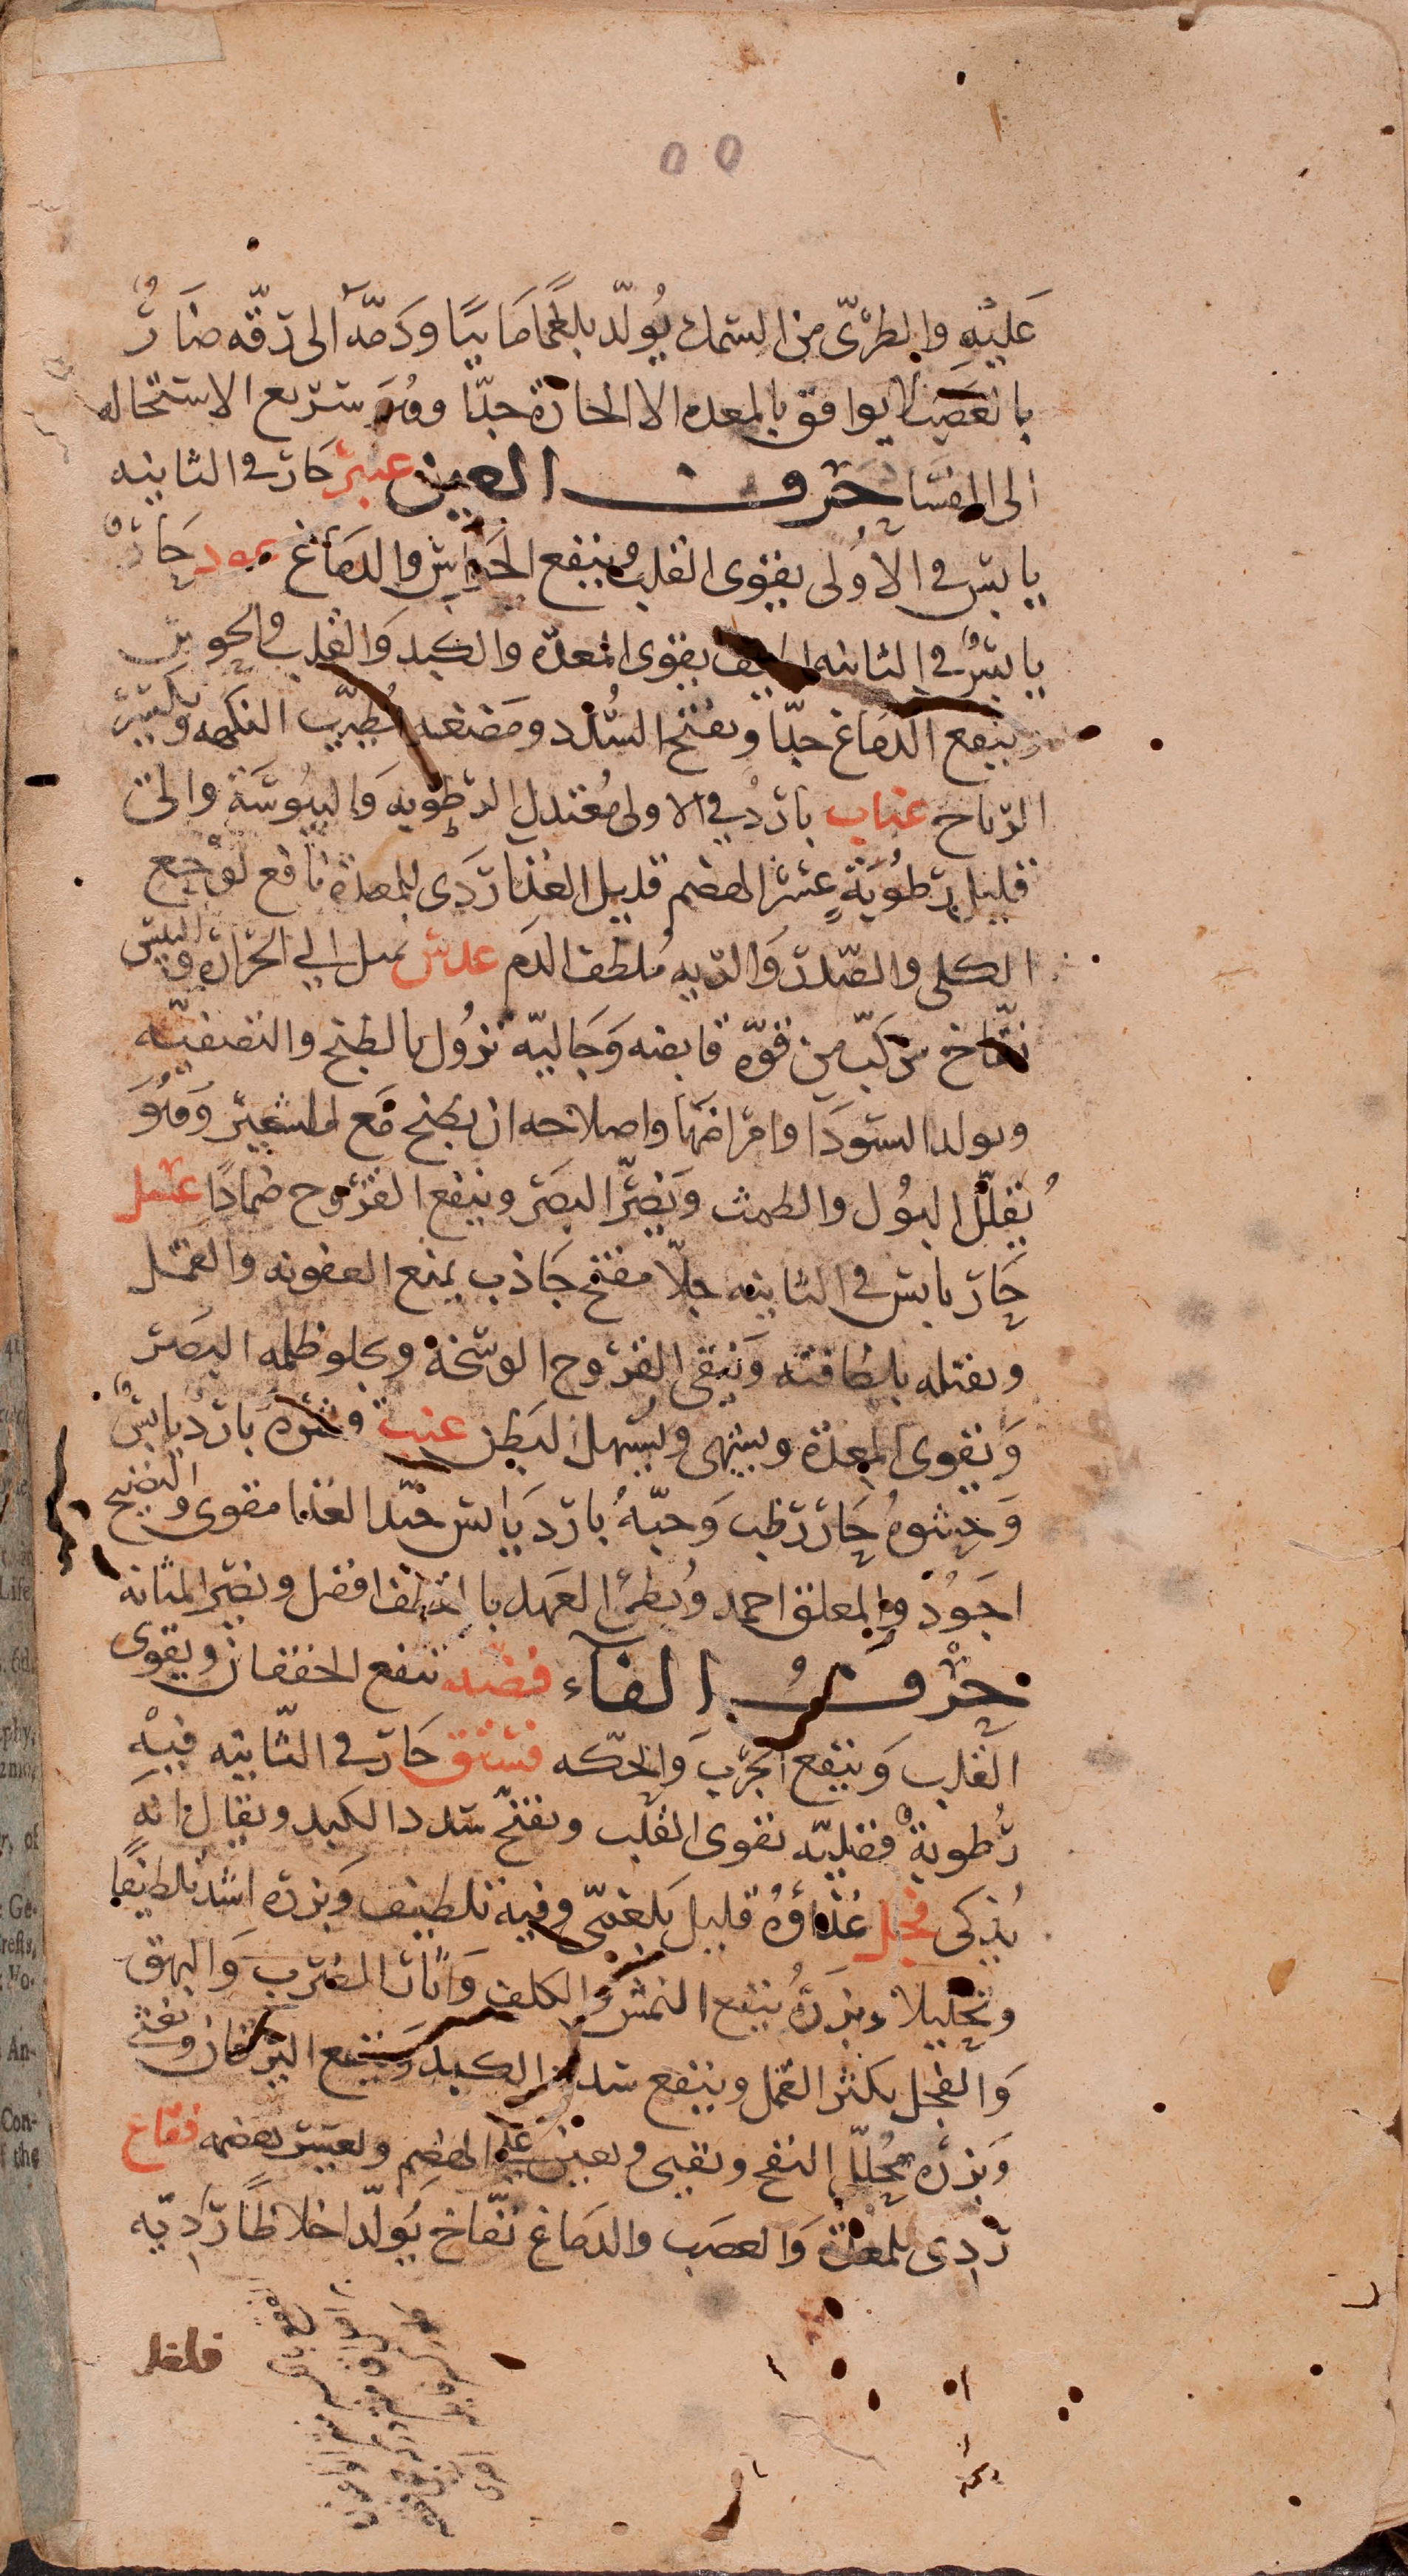 ٥٥
عَليْهِ والطرىّ من السمك يُولّد بلغمًا مَاييًا وَدَمّهُ الى رقّه ضَارٌّ
بالعَصَب لا يوافق بالمعده الا الحارة جدّا وهُوَ سَرْيع الاستحاله
الى الفسَاد حَرف العين عنبر حَار فى الثانيه
يابسٌ فى الاُولى يقوى القلب وينفع الحَواس والدمَاغ عود حَارٌ
يابسٌ فى الثانيه لطيف يقوى المعدّه والكبد وَالقلب والحواس
وينفع الدمَاغ جدّا ويفتح السُدد ومَضغه يُطيّب النكهه ويكسر
الرّياح عناب باردٌ في الاولى مُعْتدل الرطوبه وَاليبُوسَة والى
قليل رطُوبَةٍ عسر الهضم قليل الغذا رَدى للمعدة نافع لوَجع
الكلى والصّدر وَالريه مُلطف الدَم عدس يميل الى الحَرارة واليبس
نفّاخ مركبّ من قوّه قابضه وَجَاليّه تزُول بالطبخ والتصفيّه
ويولد السَودَا وامرَاضهَا واصلاحه ان يطبخ مَع الشعير وَهُوَ
يُقلّل البَوُل والطمث وَيَضرّ البصَر وينفع القرُوح ضمادًا عسل
حَار يابس فى الثانيه جلّا مفتح جَاذب يمنع العفونه والقمل
ويقتله بلطافته وَينقى القرُوح الوسَخة ويجلو ظلمه البصَر
وَيقوى المعدَة ويشهى ويُسهل البَطن عنب قشره بَارد يابسٌ
وَحشوهُ حَار رَطب وَحبّهُ بَارد يَابس جيّد الغذا مقوى والنضيج
اجَوُد والمعلق احمد وُبطئ العَهد بالقطف افضل ويضر المثانه
حَرْفُ الفآء فضه تنفع الخفقان ويقوى
القلب وَينفع الجرَبَ وَالحكّه فستق حَار فى الثّانيه فيْهِ
رُطوبةٌ فضليّه يقوى القلب ويفتح سُدد الكبد ويقال انهَ
يُذكى فجل غذاؤهُ قليل بَلغمىّ وفيه تلطيف وَبزره اشد تلطيفًا
وتحليلا وبزرَهُ ينفع النمش وَالكلف وَاثار الضرب وَالبهق
وَالفجل يكثر القمل وينفع سُدد الكبد وَينفع اليرقَان ويفتح
وَبزره يحُللّ النفخ ويقيى ويعين على الهضم ويعسر هضمه فقاع
رَدِى للمعدة وَالعصَب والدمَاغ نفّاخ يُولّد اخلاطًا رَدِيّه
فلفل